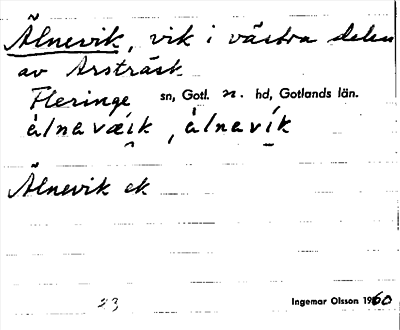 Älnevik, vik i västra delen
av Arsträsk
Fleringe sn, Gotl. n. hd, Gotlands län.
àlnavæik, àlnavík
Älnevik ek
23
Ingemar Olsson 1960